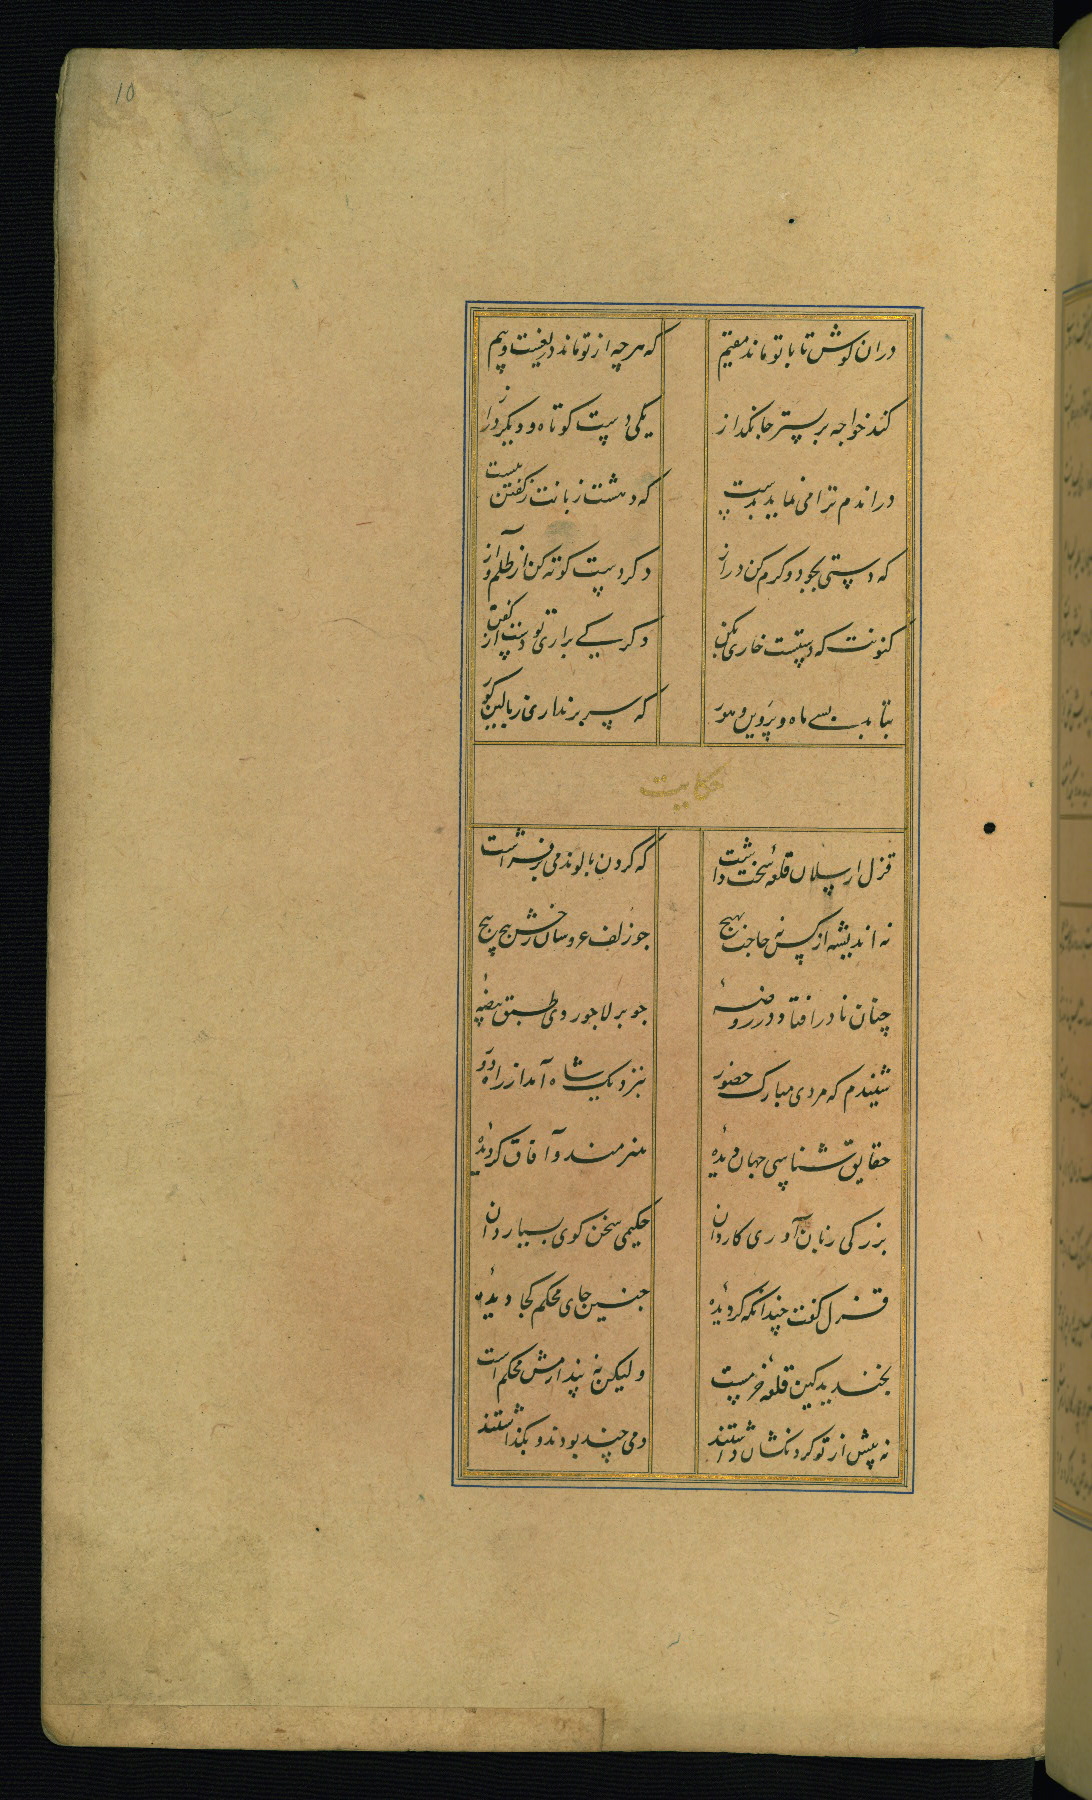 10
دران کوش تا با تو ماند مقیم که هرچه از تو ماند دریغست و بیم
کند خواجه بر بستر جانگداز یکی دست کوتاه و دیگر دراز
دراندم ترا می نماید بدست که دهشت زبانت ز گفتن ببست
که دستی بجود و کرم کن دراز دگر دست کوته کن از ظلم و آز
کنونت که دستست خاری بکن دگر کی براری تو دست از کفن
بتابد بسی ماه و پروین و هور که سر برنداری ز بالین گور
حکایت
قزل ارسلان قلعهٔ سخت داشت که گردن بالوند می برفراشت
نه اندیشه از کس نه حاجت بهیچ جو زلف عروسان رخش پیچ پیچ
چنان نادر افتاد در روضهٔ جو بر لاجوردی طبق بیضهٔ
شنیدم که مردی مبارک حضور بنزدیک شاه آمد از راه دور
حقایق شناسی جهان دیدهٔ هنرمند و آفاق گردیدهٔ
بزرگی زبان آوری کاردان حکیمی سخن گوی بسیاردان
قزل گفت چندانکه گردیدهٔ جنین جای محکم کجا دیدهٔ
بخندید کین قلعهٔ خرمست ولیکن نه پندارمش محکم است
نه پیش از تو گردنکشان داشتند دمی چند بودند و بگذاشتند